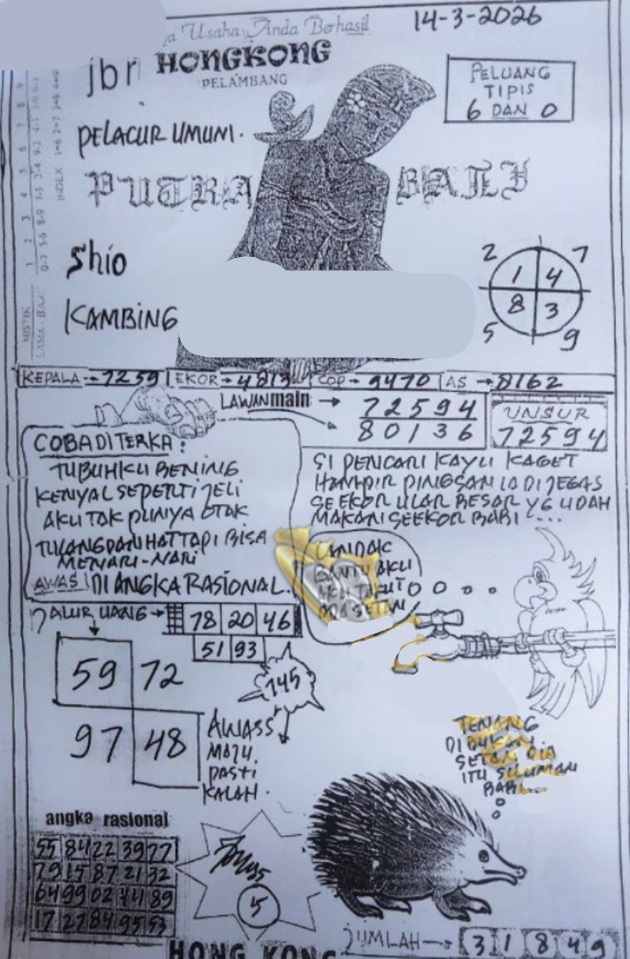 Usaha Anda Berhasil
14-3-2026
jbr HONGKONG
PELAMBANG
PELUANG
TIPIS
6 DAN 0
PELACUR UMUM.
PUTRA BALI
Shio
KAMBING
2 7
1 4
8 3
5 9
KEPALA → 7259 EKOR → 4813 COP → 9470 AS → 8162
LAWAN main → 72594
80136
UNSUR
72594
COBA DITERKA:
TUBUHKU BENING
KENYAL SEPERTI JELI
AKU TAK PUNYA OTAK
TULANG DAN HATI TAPI BISA
MENARI-NARI
AWAS! DI ANGKA RASIONAL.
SI PENCARI KAYU KAGET
HAMPIR PINGSAN IA DI
SEEKOR ULAR BESAR YG UDAH
MAKAN SEEKOR BABI...
LANDAK
BANTU AKU
AKU TAKUT
ADA SETAN
JALUR UANG → 78 20 46
51 93
59 72
97 48
145
AWASS
MAJU
PASTI
KALAH.
TENANG
DI DUKUN
SETAN DIA
ITU SILUMAN
BABI...
angka rasional
55 84 22 39 77
79 15 87 21 32
64 99 02 44 89
17 27 84 95 53
5
JUMLAH → 3 1 8 4 9
HONG KONG